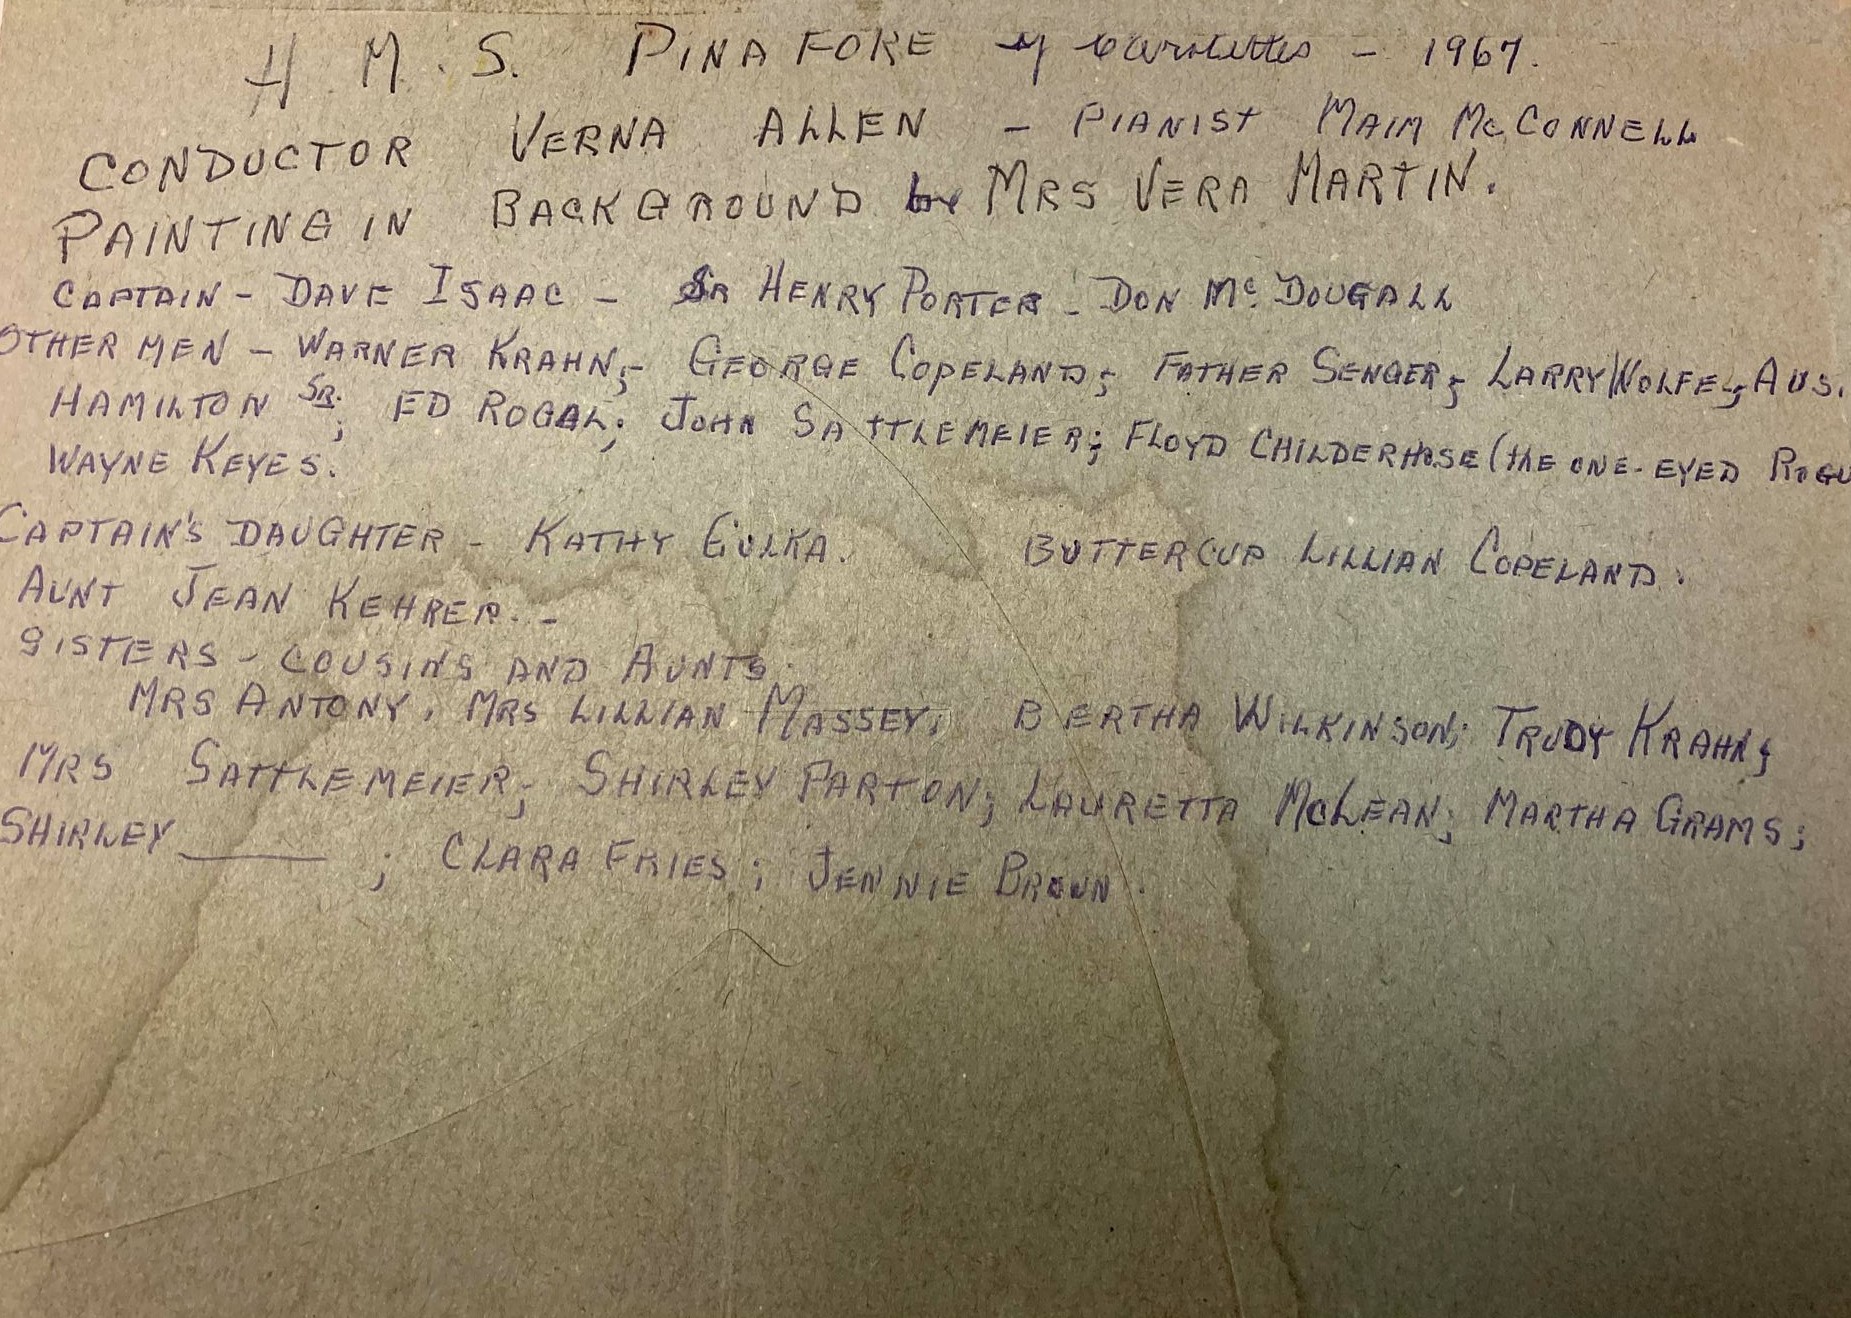 H. M. S. PINAFORE by Carolettes - 1967.
CONDUCTOR VERNA ALLEN - PIANIST MAIM McCONNELL
PAINTING IN BACKGROUND by MRS VERA MARTIN.
CAPTAIN - DAVE ISAAC - SR HENRY PORTER - DON McDOUGALL
OTHER MEN - WARNER KRAHN; - GEORGE COPELAND; FATHER SENGER; LARRY WOLFE; AUS.
HAMILTON SR.; ED ROGAL; JOHN SATTLEMEIER; FLOYD CHILDERHOSE (the ONE-EYED ROGU
WAYNE KEYES.
CAPTAIN'S DAUGHTER - KATHY GULKA. BUTTERCUP LILLIAN COPELAND.
AUNT JEAN KEHRER. -
SISTERS - COUSINS AND AUNTS.
MRS ANTONY. MRS LILLIAN MASSEY. BERTHA WILKINSON; TRUDY KRAHN;
MRS SATTLEMEIER; SHIRLEY PARTON; LAURETTA McLEAN; MARTHA GRAMS;
SHIRLEY ______ ; CLARA FRIES; JENNIE BROWN.